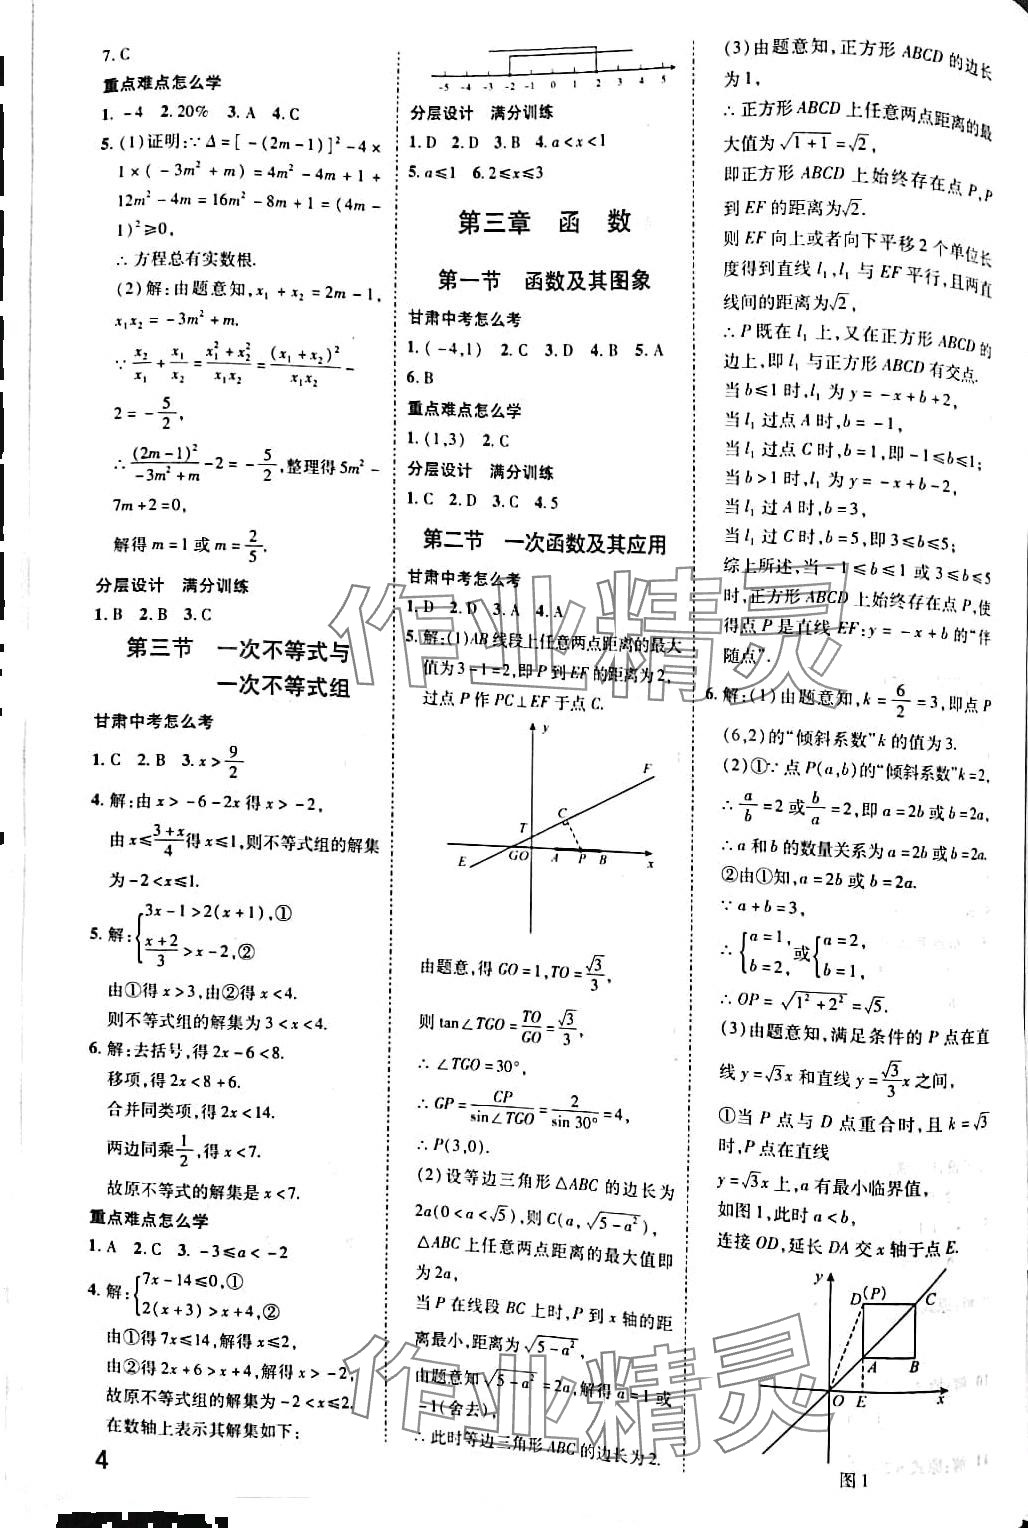 7. C
重点难点怎么学
1. -4 2. 20% 3. A 4. C
5. (1)证明:∵Δ=[-(2m-1)]²-4×
1×(-3m²+m)=4m²-4m+1+
12m²-4m=16m²-8m+1=(4m-
1)²≥0,
∴方程总有实数根.
(2)解:由题意知,x₁+x₂=2m-1,
x₁x₂=-3m²+m.
∵x₂/x₁+x₁/x₂=(x₁²+x₂²)/(x₁x₂)=(x₁+x₂)²/(x₁x₂)-
2=-5/2,
∴(2m-1)²/(-3m²+m)-2=-5/2,整理得5m²-
7m+2=0,
解得m=1或m=2/5.
分层设计 满分训练
1. B 2. B 3. C
第三节 一次不等式与
一次不等式组
甘肃中考怎么考
1. C 2. B 3. x>9/2
4. 解:由x>-6-2x得x>-2,
由x≤(3+x)/4得x≤1,则不等式组的解集
为-2<x≤1.
5. 解:{3x-1>2(x+1),①
(x+2)/3>x-2,②
由①得x>3,由②得x<4.
则不等式组的解集为3<x<4.
6. 解:去括号,得2x-6<8.
移项,得2x<8+6.
合并同类项,得2x<14.
两边同乘1/2,得x<7.
故原不等式的解集是x<7.
重点难点怎么学
1. A 2. C 3. -3≤a<-2
4. 解:{7x-14≤0,①
2(x+3)>x+4,②
由①得7x≤14,解得x≤2,
由②得2x+6>x+4,解得x>-2,
故原不等式组的解集为-2<x≤2.
在数轴上表示其解集如下:
4
-5 -4 -3 -2 -1 0 1 2 3 4 5
分层设计 满分训练
1. D 2. D 3. B 4. a<x<1
5. a≤1 6. 2≤x≤3
第三章 函 数
第一节 函数及其图象
甘肃中考怎么考
1. (-4,1) 2. C 3. D 4. B 5. A
6. B
重点难点怎么学
1. (1,3) 2. C
分层设计 满分训练
1. C 2. D 3. C 4. 5
第二节 一次函数及其应用
甘肃中考怎么考
1. D 2. D 3. A 4. A
5. 解:(1)AB线段上任意两点距离的最大
值为3-1=2,即P到EF的距离为2,
过点P作PC⊥EF于点C.
y
F
C
T
E GO A P B x
由题意,得GO=1,TO=√3/3,
则tan∠TGO=TO/GO=√3/3,
∴∠TGO=30°,
∴GP=CP/sin∠TGO=2/sin 30°=4,
∴P(3,0).
(2)设等边三角形△ABC的边长为
2a(0<a<√5),则C(a,√(5-a²)),
△ABC上任意两点距离的最大值即
为2a,
当P在线段BC上时,P到x轴的距
离最小,距离为√(5-a²),
由题意知√(5-a²)=2a,解得a=1或
-1(舍去),
∴此时等边三角形ABC的边长为2.
(3)由题意知,正方形ABCD的边长
为1,
∴正方形ABCD上任意两点距离的最
大值为√(1+1)=√2,
即正方形ABCD上始终存在点P,P
到EF的距离为√2.
则EF向上或者向下平移2个单位长
度得到直线l₁,l₁与EF平行,且两直
线间的距离为√2,
∴P既在l₁上,又在正方形ABCD的
边上,即l₁与正方形ABCD有交点.
当b≤1时,l₁为y=-x+b+2,
当l₁过点A时,b=-1,
当l₁过点C时,b=1,即-1≤b≤1;
当b>1时,l₁为y=-x+b-2,
当l₁过A时,b=3,
当l₁过C时,b=5,即3≤b≤5;
综上所述,当-1≤b≤1或3≤b≤5
时,正方形ABCD上始终存在点P,使
得点P是直线EF:y=-x+b的“伴
随点”.
6. 解:(1)由题意知,k=6/2=3,即点P
(6,2)的“倾斜系数”k的值为3.
(2)①∵点P(a,b)的“倾斜系数”k=2,
∴a/b=2或b/a=2,即a=2b或b=2a,
∴a和b的数量关系为a=2b或b=2a.
②由①知,a=2b或b=2a.
∵a+b=3,
∴{a=1,b=2,或{a=2,b=1,
∴OP=√(1²+2²)=√5.
(3)由题意知,满足条件的P点在直
线y=√3x和直线y=√3/3x之间,
①当P点与D点重合时,且k=√3
时,P点在直线
y=√3x上,a有最小临界值,
如图1,此时a<b,
连接OD,延长DA交x轴于点E.
y
D (P) C
A B
O E x
图1
作业精灵
作业精灵